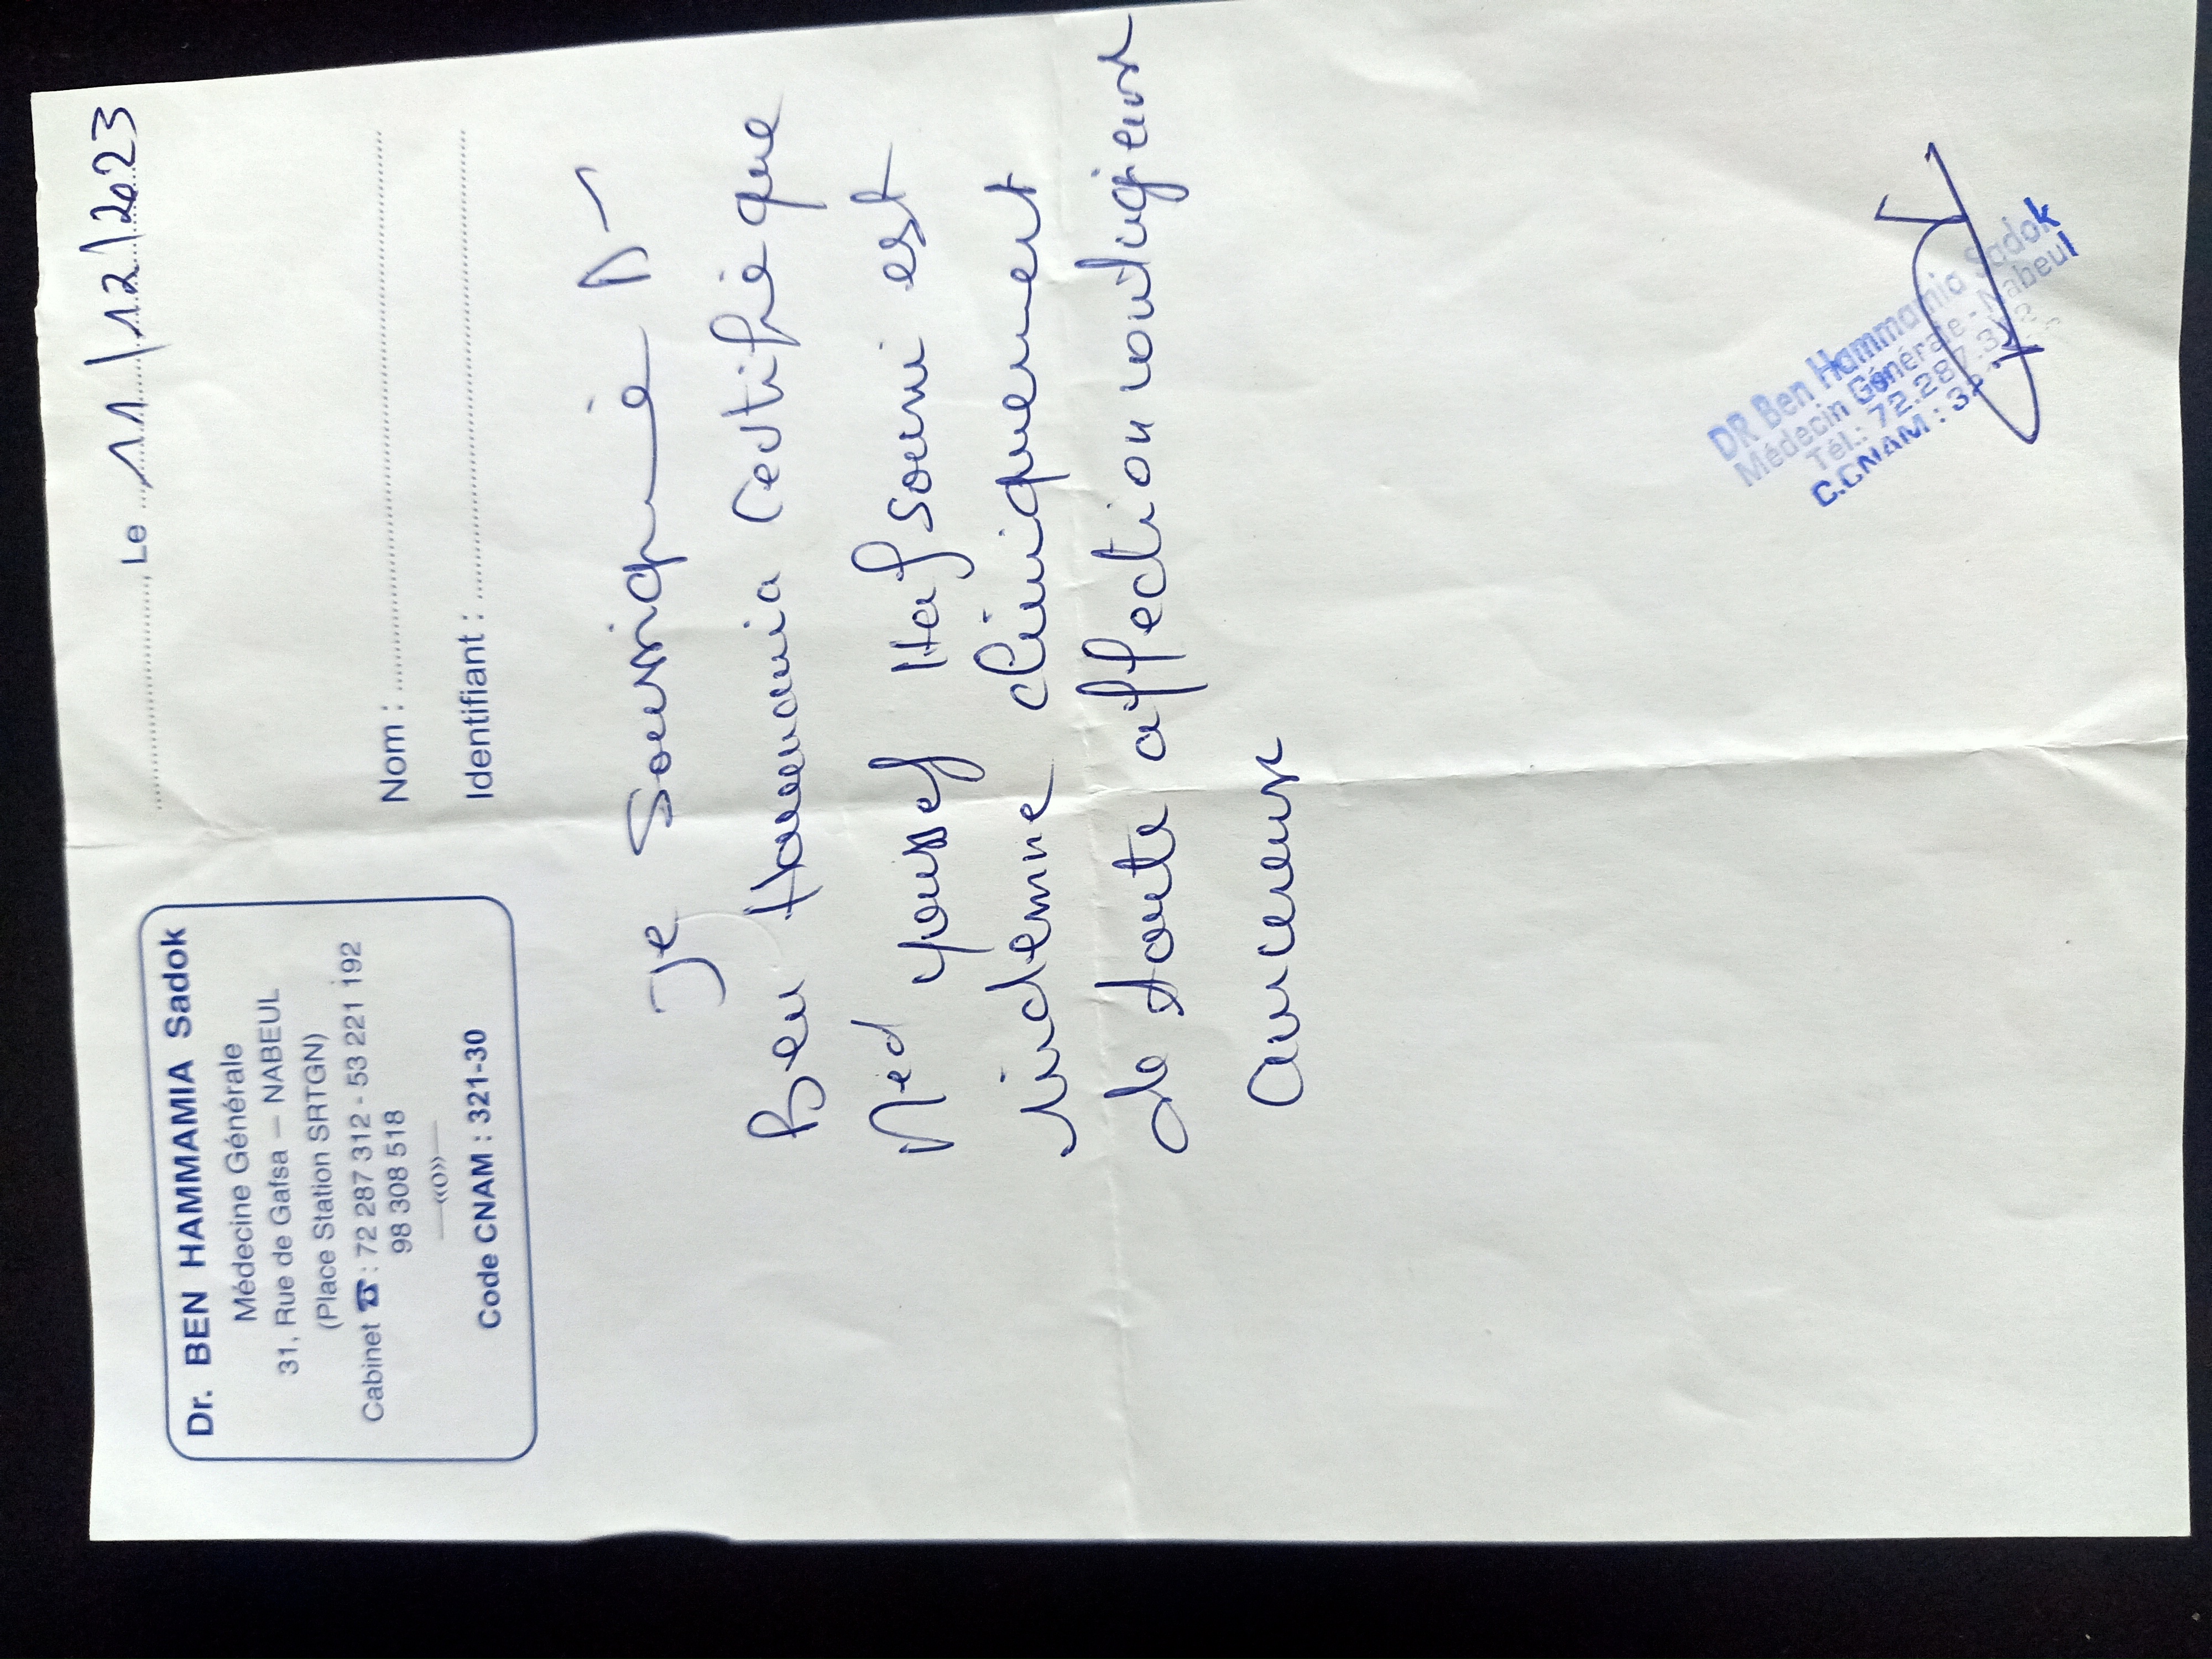 Dr. BEN HAMMAMIA Sadok
Médecine Générale
31, Rue de Gafsa – NABEUL
(Place Station SRTGN)
Cabinet ☎ : 72 287 312 - 53 221 192
98 308 518
—«o»—
Code CNAM : 321-30
, Le 11/12/2023
Nom :
Identifiant :
Je Soussigné Dr
Ben Hammamia Certifie que
Med Youssef Hafsouni est
indemne cliniquement
de toute affection
DR Ben Hammamia Sadok
Médecin Générale - Nabeul
Tél.: 72.287.312
C.CNAM :